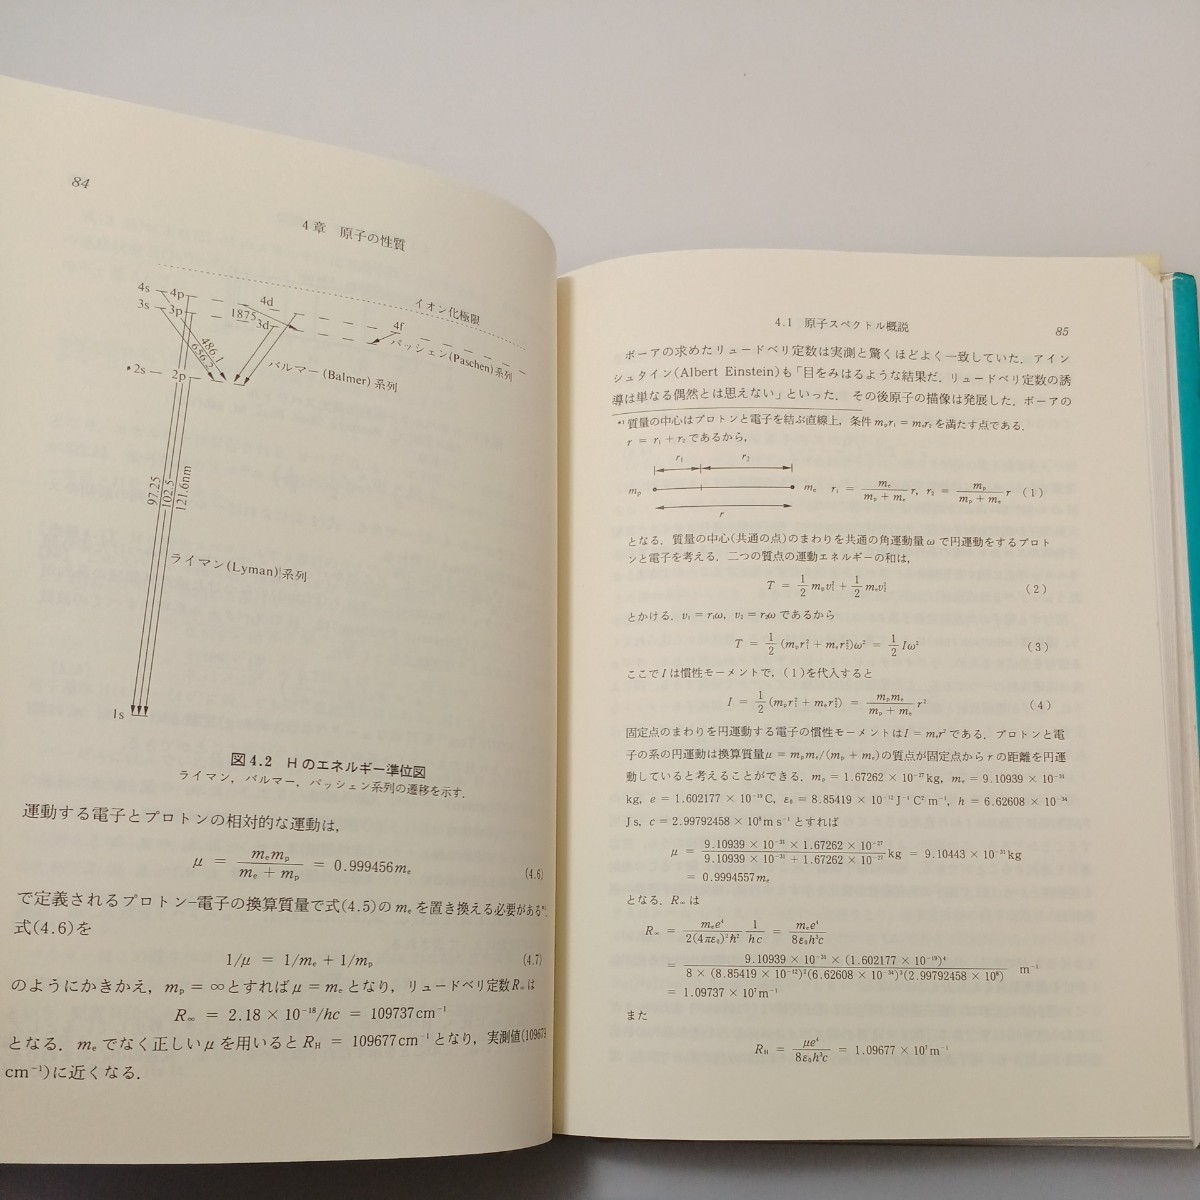 84
4章　原子の性質
イオン化極限
4s 4p 4d 4f
3s 3p 3d
1875
486.1
656.2
パッシェン(Paschen)系列
バルマー(Balmer)系列
2s 2p
97.25
102.5
121.6nm
ライマン(Lyman)系列
1s
図4.2　Hのエネルギー準位図
ライマン，バルマー，パッシェン系列の遷移を示す.
運動する電子とプロトンの相対的な運動は,
μ = mₑmₚ / (mₑ + mₚ) = 0.999456mₑ (4.6)
で定義されるプロトン-電子の換算質量で式(4.5)のmₑを置き換える必要がある*¹.
式(4.6)を
1/μ = 1/mₑ + 1/mₚ (4.7)
のようにかきかえ，mₚ = ∞とすればμ = mₑとなり，リュードベリ定数R∞は
R∞ = 2.18 × 10⁻¹⁸/hc = 109737cm⁻¹
となる．mₑでなく正しいμを用いるとR_H = 109677cm⁻¹となり，実測値(109679
cm⁻¹)に近くなる.
4.1　原子スペクトル概説
85
ボーアの求めたリュードベリ定数は実測と驚くほどよく一致していた．アイン
シュタイン(Albert Einstein)も「目をみはるような結果だ．リュードベリ定数の誘
導は単なる偶然とは思えない」といった．その後原子の描像は発展した．ボーアの
*¹ 質量の中心はプロトンと電子を結ぶ直線上，条件mₚr₁ = mₑr₂を満たす点である.
r = r₁ + r₂であるから,
r₁ r₂
mₚ mₑ r₁ = mₑ / (mₚ + mₑ) r, r₂ = mₚ / (mₚ + mₑ) r (1)
r
となる．質量の中心(共通の点)のまわりを共通の角運動量ωで円運動をするプロト
ンと電子を考える．二つの質点の運動エネルギーの和は,
T = 1/2 mₚv₁² + 1/2 mₑv₂² (2)
とかける．v₁ = r₁ω, v₂ = r₂ωであるから
T = 1/2 (mₚr₁² + mₑr₂²)ω² = 1/2 Iω² (3)
ここでIは慣性モーメントで，(1)を代入すると
I = 1/2 (mₚr₁² + mₑr₂²) = mₚmₑ / (mₚ + mₑ) r² (4)
固定点のまわりを円運動する電子の慣性モーメントはI = mₑr²である．プロトンと電
子の系の円運動は換算質量μ = mₚmₑ/(mₚ + mₑ)の質点が固定点からrの距離を円運
動していると考えることができる．mₚ = 1.67262 × 10⁻²⁷kg, mₑ = 9.10939 × 10⁻³¹
kg, e = 1.602177 × 10⁻¹⁹C, ε₀ = 8.85419 × 10⁻¹²J⁻¹C²m⁻¹, h = 6.62608 × 10⁻³⁴
Js, c = 2.99792458 × 10⁸m s⁻¹とすれば
μ = 9.10939 × 10⁻³¹ × 1.67262 × 10⁻²⁷ / 9.10939 × 10⁻³¹ + 1.67262 × 10⁻²⁷ kg = 9.10443 × 10⁻³¹kg
= 0.9994557mₑ
となる．R∞は
R∞ = mₑe⁴ / 2(4πε₀)²ħ² 1/hc = mₑe⁴ / 8ε₀h³c
= 9.10939 × 10⁻³¹ × (1.602177 × 10⁻¹⁹)⁴ / 8 × (8.85419 × 10⁻¹²)²(6.62608 × 10⁻³⁴)³(2.99792458 × 10⁸) m⁻¹
= 1.09737 × 10⁷m⁻¹
また
R_H = μe⁴ / 8ε₀h³c = 1.09677 × 10⁷m⁻¹